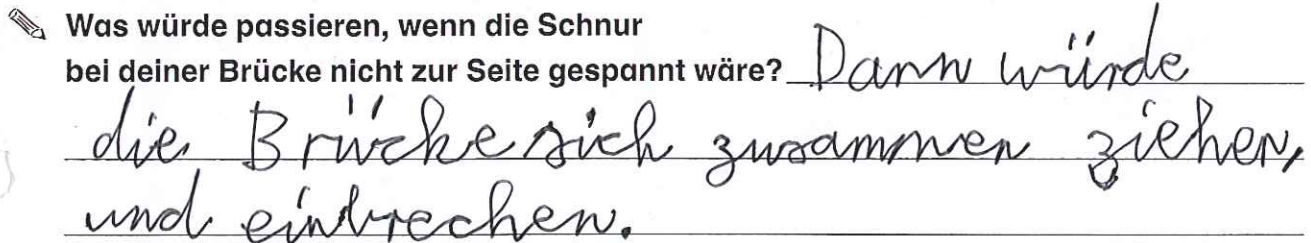 Was würde passieren, wenn die Schnur
bei deiner Brücke nicht zur Seite gespannt wäre? Dann würde
die Brücke sich zusammen ziehen,
und einbrechen.